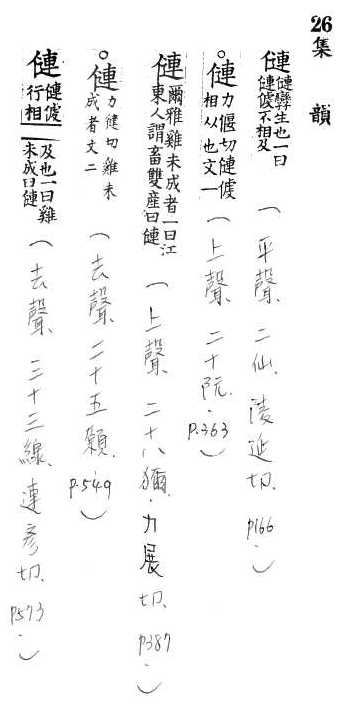 26集韻
僆僆孿生也一曰僆僆不相及(平聲、二仙、陵延切、P166)
○僆力偃切僆㾕相从也文一(上聲、二十阮、P.363)
僆爾雅雞未成者一曰江東人謂畜雙產曰僆(上聲、二十八獮、力展切、P387)
○僆力健切雞未成者文二(去聲、二十五願、P.549)
僆行相及也一曰雞未成曰僆(去聲、三十三線、連彥切、P573)